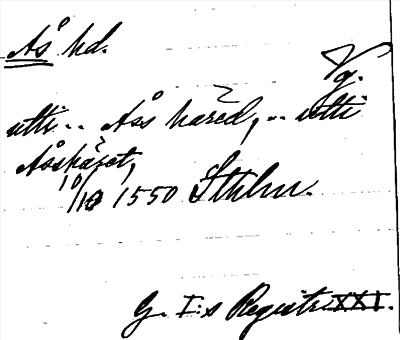 Ås hd.
Vg.
utti .. Åss håred, .. utti
Åskäret,
10/10 1550 Sthlm.
G. I:s Registr. XXI.